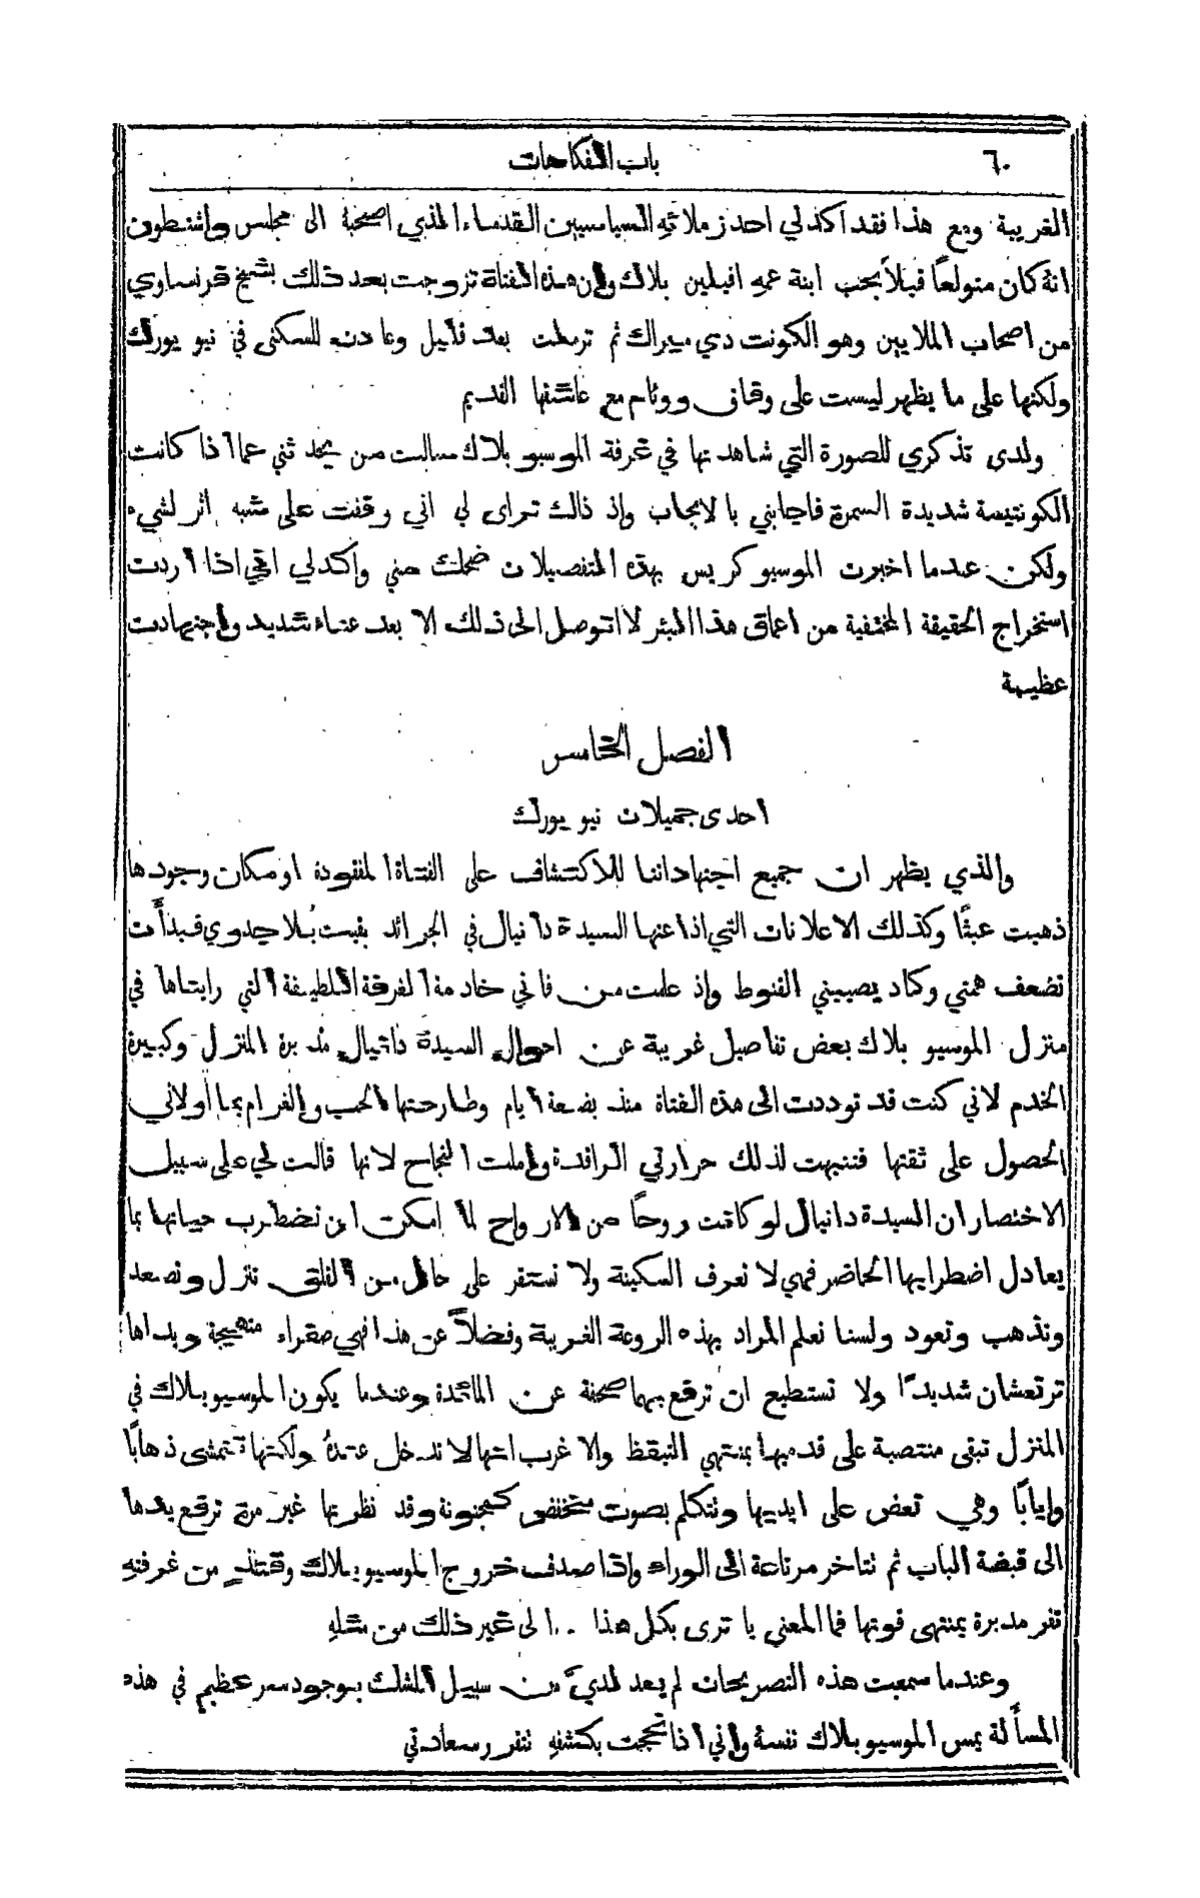 ٦٠
باب الفكاهات
الغريبة ومع هذا فقد اكد لي احد زملائهِ السياسيين القدماء الذي اصحبهُ الى مجلس واشنطون
انهُ كان متولعًا قبلاً بحب ابنة عمهِ افيلين بلاك وان هذه الفتاة تزوجت بعد ذلك بشيخ فرنساوي
من اصحاب الملايين وهو الكونت دي ميراك ثم ترملت بعد قليل وعادت للسكنى في نيو يورك
ولكنها على ما يظهر ليست على وفاق ووئام مع عاشقها القديم
ولدى تذكري للصورة التي شاهدتها في غرفة الموسيو بلاك سالت من يحدثني عما اذا كانت
الكونتيسة شديدة السمرة فاجابني بالايجاب واذ ذاك تراى لي اني وقفت على شبه اثر لشيء
ولكن عندما اخبرت الموسيو كريس بهذه التفصيلات ضحك مني واكد لي انني اذا اردت
استخراج الحقيقة المختفية من اعماق هذا البئر لا اتوصل الى ذلك الا بعد عناء شديد واجتهادات
عظيمة
الفصل الخامس
احدى جميلات نيو يورك
والذي يظهر ان جميع اجتهاداتنا للاكتشاف على الفتاة المفقودة او مكان وجودها
ذهبت عبثًا وكذلك الاعلانات التي اذاعتها السيدة دانيال في الجرائد بقيت بُلا جدوى فبدأَت
تضعف همتي وكاد يصيبني القنوط واذ علمت من فاني خادمة الغرفة اللطيفة التي رايتاها في
منزل الموسيو بلاك بعض تفاصيل غريبة عن احوال السيدة دانيال مدبرة المنزل وكبيرة
الخدم لاني كنت قد توددت الى هذه الفتاة منذ بضعة ايام وطارحتها الحب والغرام بما أولاني
الحصول على ثقتها فتنبهت لذلك حرارتي الراقدة واملت النجاح لانها قالت لي على سبيل
الاختصار ان السيدة دانيال لو كانت روحًا من الارواح لما امكن ان تضطرب حياتها بما
يعادل اضطرابها الحاضر فهي لا تعرف السكينة ولا تستقر على حال من القلق تنزل وتصعد
وتذهب وتعود ولسنا نعلم المراد بهذه الروعة الغريبة وفضلاً عن هذا فهي صفراء متهيجة ويداها
ترتعشان شديدًا ولا تستطيع ان ترفع بهما صحنة عن المائدة وعندما يكون الموسيو بلاك في
المنزل تبقى منتصبة على قدميها بمنتهي التيقظ والاغرب انها لا تدخل عندهُ ولكنها تتمشى ذهابًا
وايابًا وهي تعض على ايديها وتتكلم بصوت منخفض كمجنونة وقد نظرتها غير مرة ترفع يدها
الى قبضة الباب ثم تتاخر مرتاعة الى الوراء واذا صدف خروج الموسيو بلاك وقتئذٍ من غرفتهِ
تفر مدبرة بمنتهى قوتها فما المعنى يا ترى بكل هذا .. الى غير ذلك من مثلهِ
وعندما سمعت هذه التصريحات لم يعد لديَّ من سبيل للشك بوجود سر عظيم في هذه
المسأَلة يمس الموسيو بلاك نفسهُ واني اذا نجحت بكشفهِ تتقرر سعادتي